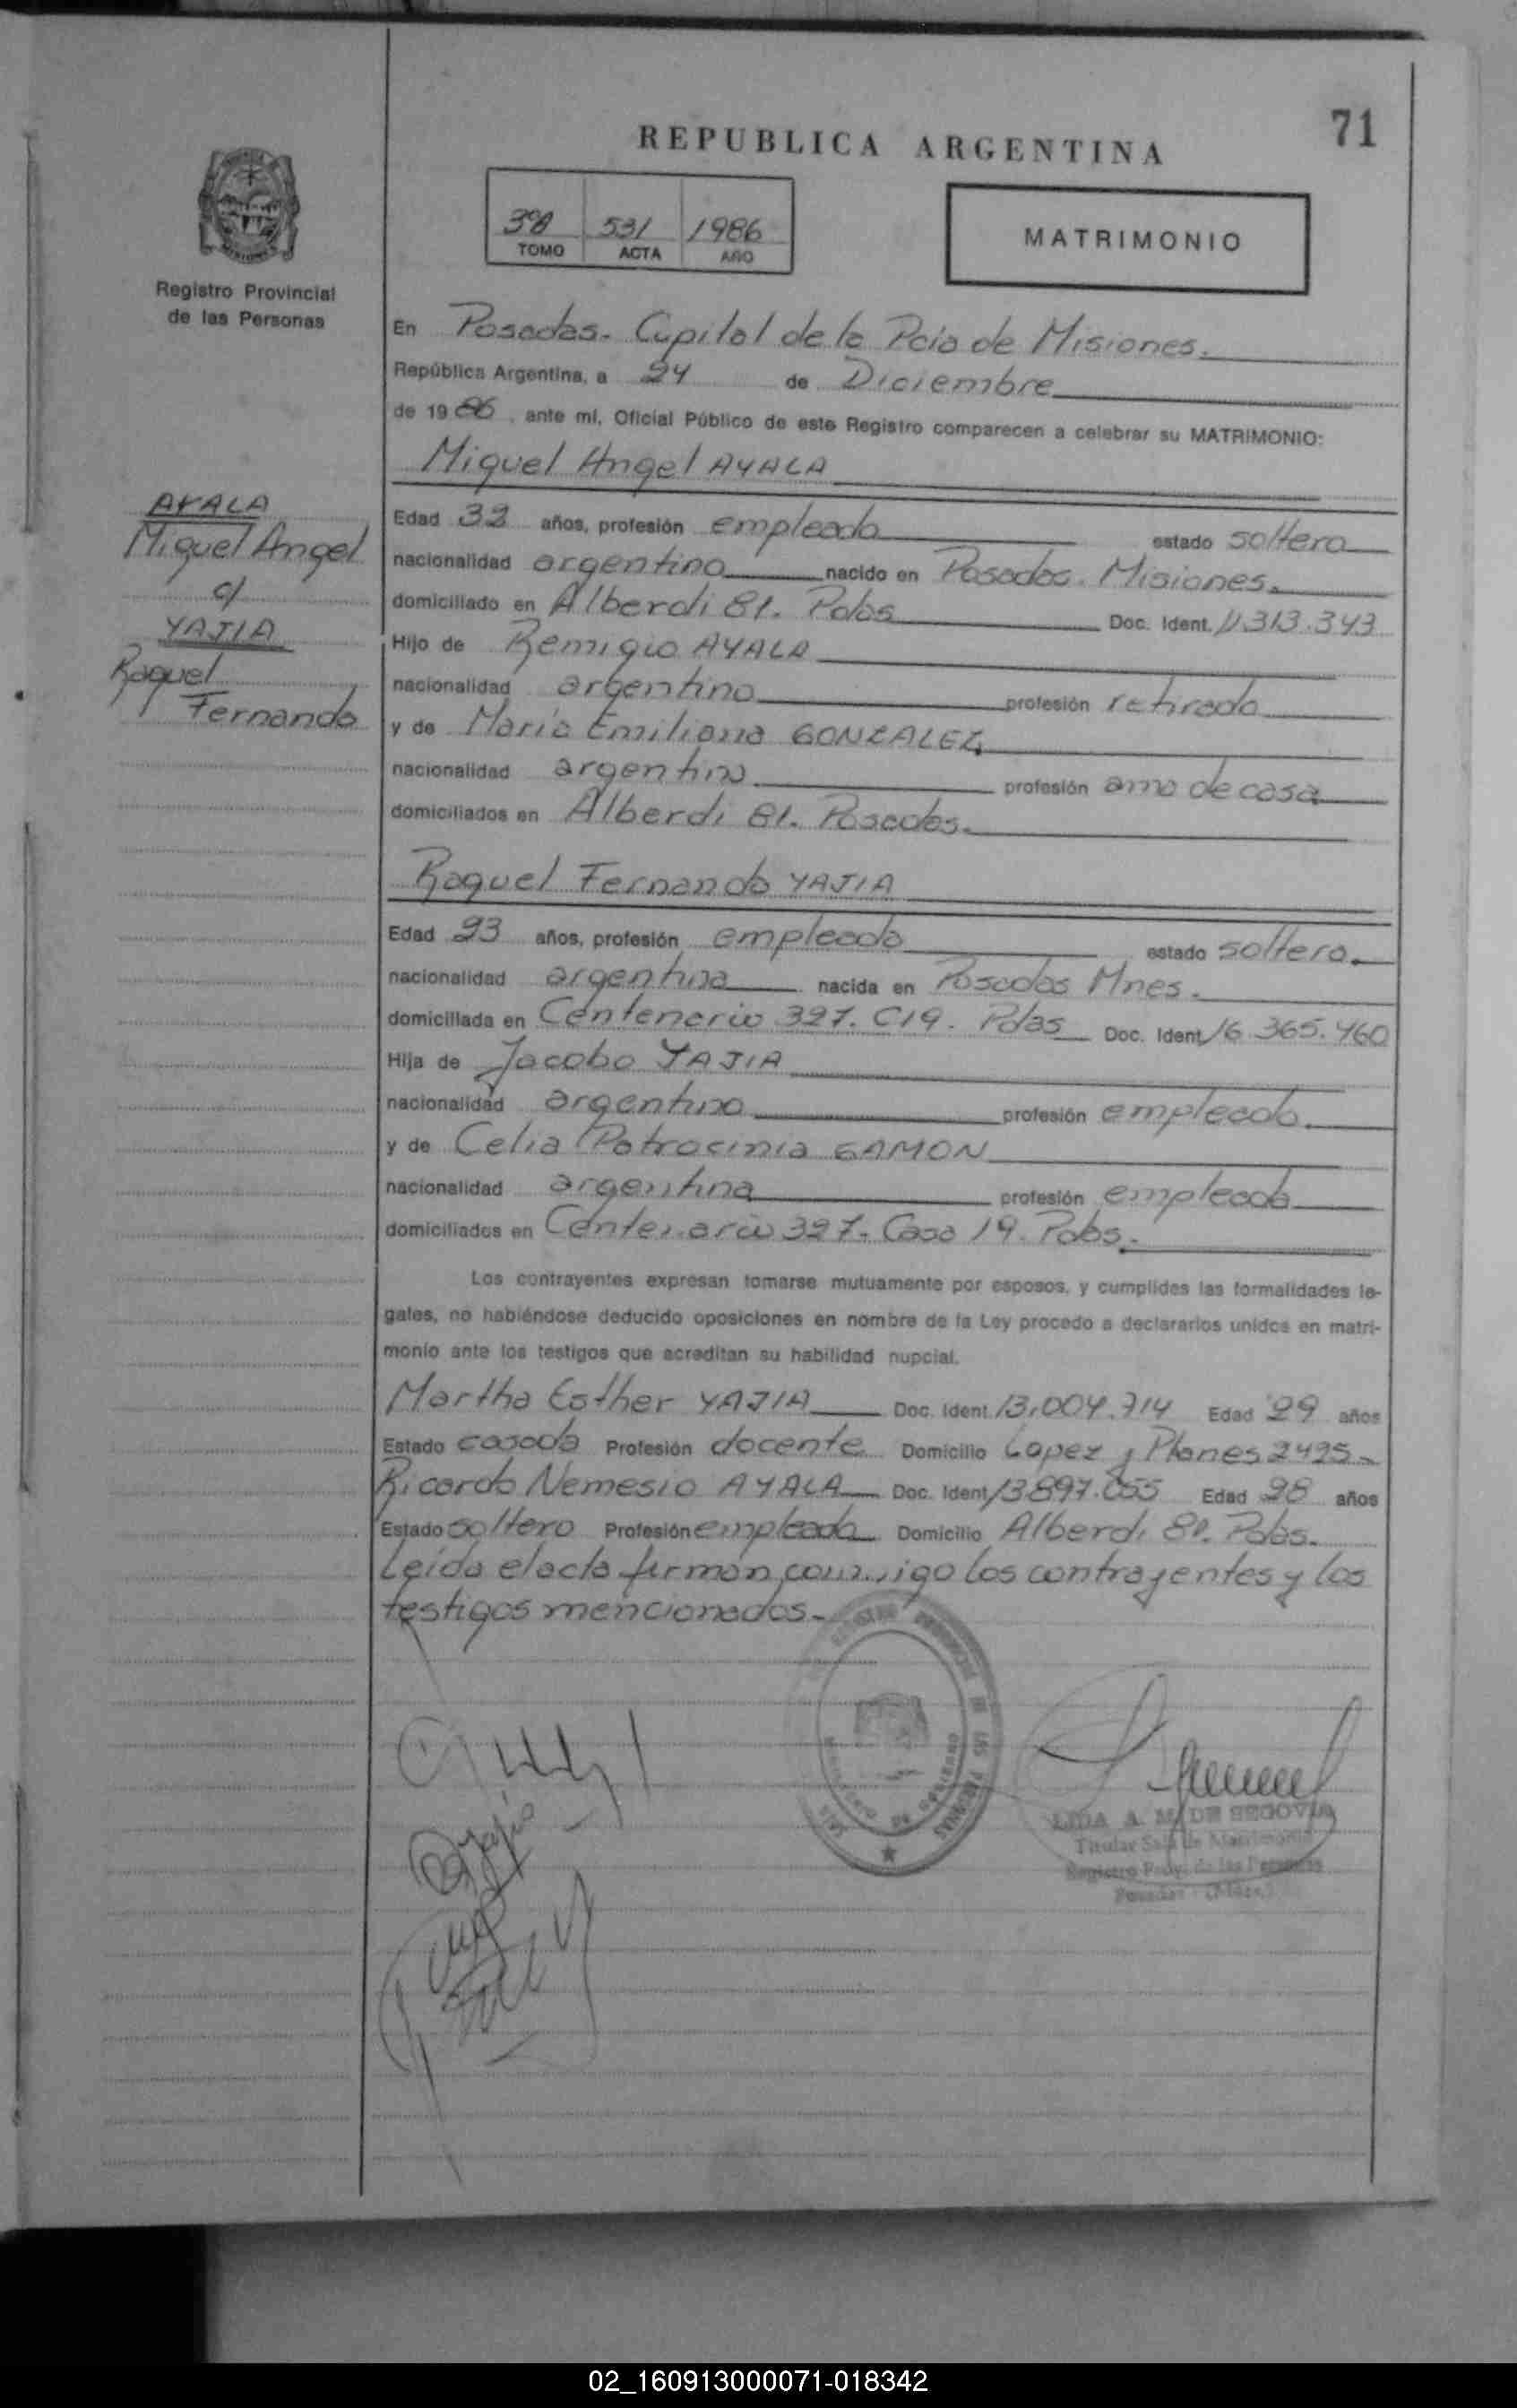 71
REPUBLICA ARGENTINA
531 1986
TOMO ACTA AÑO
MATRIMONIO
Registro Provincial
de las Personas
En Posadas - Capital de la Pcia de Misiones.
República Argentina, a 24 de Diciembre
de 1986, ante mí, Oficial Público de este Registro comparecen a celebrar su MATRIMONIO:
Miguel Angel AYALA
AYALA
Miguel Angel
c/
YAJIA
Raquel
Fernanda
Edad años, profesión empleado estado soltero
nacionalidad argentino nacido en Posadas. Misiones.
domiciliado en Alberdi 81. Pdas Doc. Ident. 11.313.343
Hijo de Remigio AYALA
nacionalidad argentino profesión retirado
y de María Emiliana GONZALEZ
nacionalidad argentina profesión ama de casa
domiciliados en Alberdi 81. Posadas.
Raquel Fernanda YAJIA
Edad 23 años, profesión empleada estado soltera.
nacionalidad argentina nacida en Posadas Mnes.
domiciliada en Centenario 327. C19. Pdas Doc. Ident. 16.365.460
Hija de Jacobo YAJIA
nacionalidad argentino profesión empleado.
y de Celia Patrocinia GAMON
nacionalidad argentina profesión empleada
domiciliados en Centenario 327. Casa 19. Pdas.
Los contrayentes expresan tomarse mutuamente por esposos, y cumplidas las formalidades le-
gales, no habiéndose deducido oposiciones en nombre de la Ley procedo a declararlos unidos en matri-
monio ante los testigos que acreditan su habilidad nupcial.
Martha Esther YAJIA Doc. Ident. 13.004.714 Edad 29 años
Estado casada Profesión docente Domicilio Lopez y Planes 2425-
Ricardo Nemesio AYALA Doc. Ident. 13.897.055 Edad 28 años
Estado soltero Profesión empleado Domicilio Alberdi Pdas.
Leída el acta firman conmigo los contrayentes y los
testigos mencionados-
LIDIA A. M. DE SEGOVIA
Titular Sala de Matrimonio
Registro Prov. de las Personas
Posadas - (Mnes.)
02_160913000071-018342